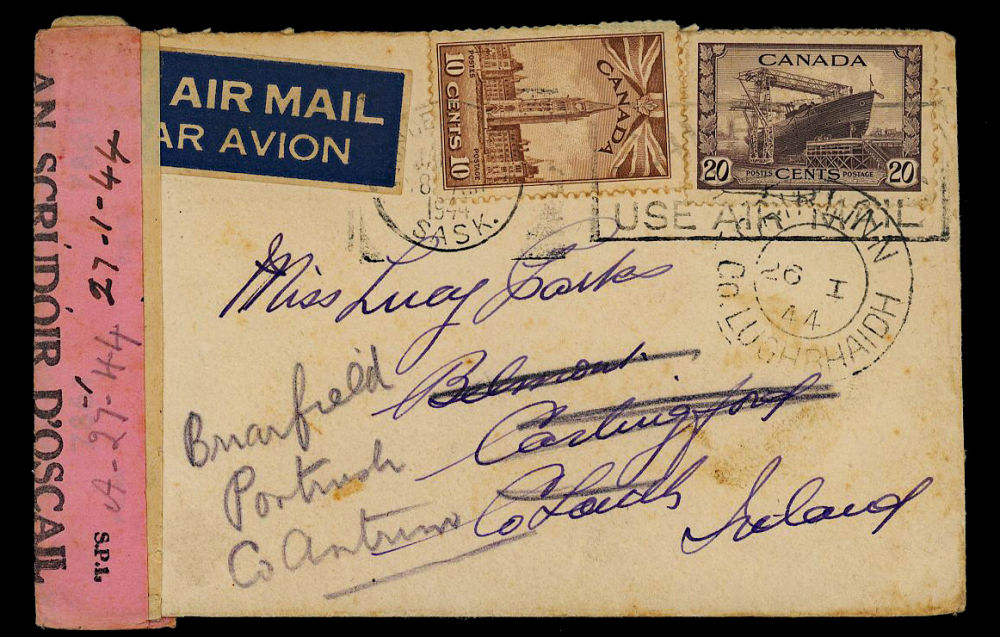 AN SCRÚDÓIR D'OSCAIL
S.P.I.
27-1-44
AIR MAIL
PAR AVION
POSTES POSTAGE
10 CENTS 10
CANADA
CANADA
20 POSTES CENTS POSTAGE 20
1944
SASK.
USE AIR MAIL
26 I
44
CO. LUGHBHAIDH
Miss Lucy Parks
Belmont
Carlingford
Co Louth
Ireland
Briarfield
Portrush
Co Antrim